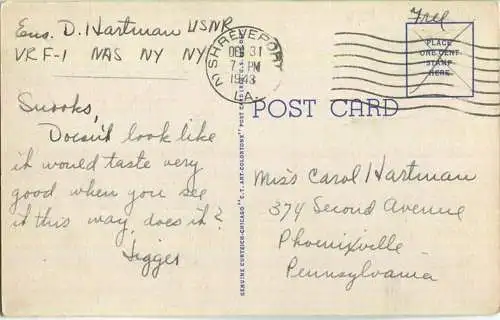 Ens. D. Hartman USNR
VRF-1 NAS NY NY
SHREVEPORT
DEC 31
7 PM
1943
LA.
Free
PLACE
ONE CENT
STAMP
HERE
POST CARD
Snooks,
Doesn't look like
it would taste very
good when you see
it this way, does it?
Jigges
GENUINE CURTEICH-CHICAGO "C.T. ART-COLORTONE" POST CARD
Miss Carol Hartman
374 Second Avenue
Phoenixville
Pennsylvania